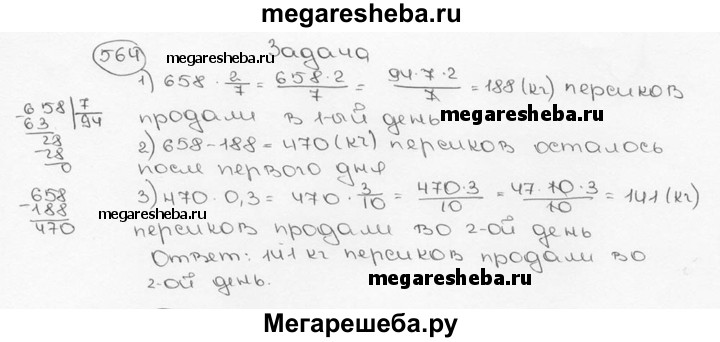 megaresheba.ru
564
Задача
megaresheba.ru
1) 658 · 2/7 = 658·2/7 = 94·7·2/7 = 188 (кг) персиков
продали в 1-ый день
2) 658-188 = 470 (кг) персиков осталось
после первого дня
3) 470 · 0,3 = 470 · 3/10 = 470·3/10 = 47·10·3/10 = 141 (кг)
персиков продали во 2-ой день
Ответ: 141 кг персиков продали во
2-ой день.
-658 | 7
63 | 94
-28
28
0
-658
188
470
megaresheba.ru
megaresheba.ru
megaresheba.ru
Мегарешеба.ру